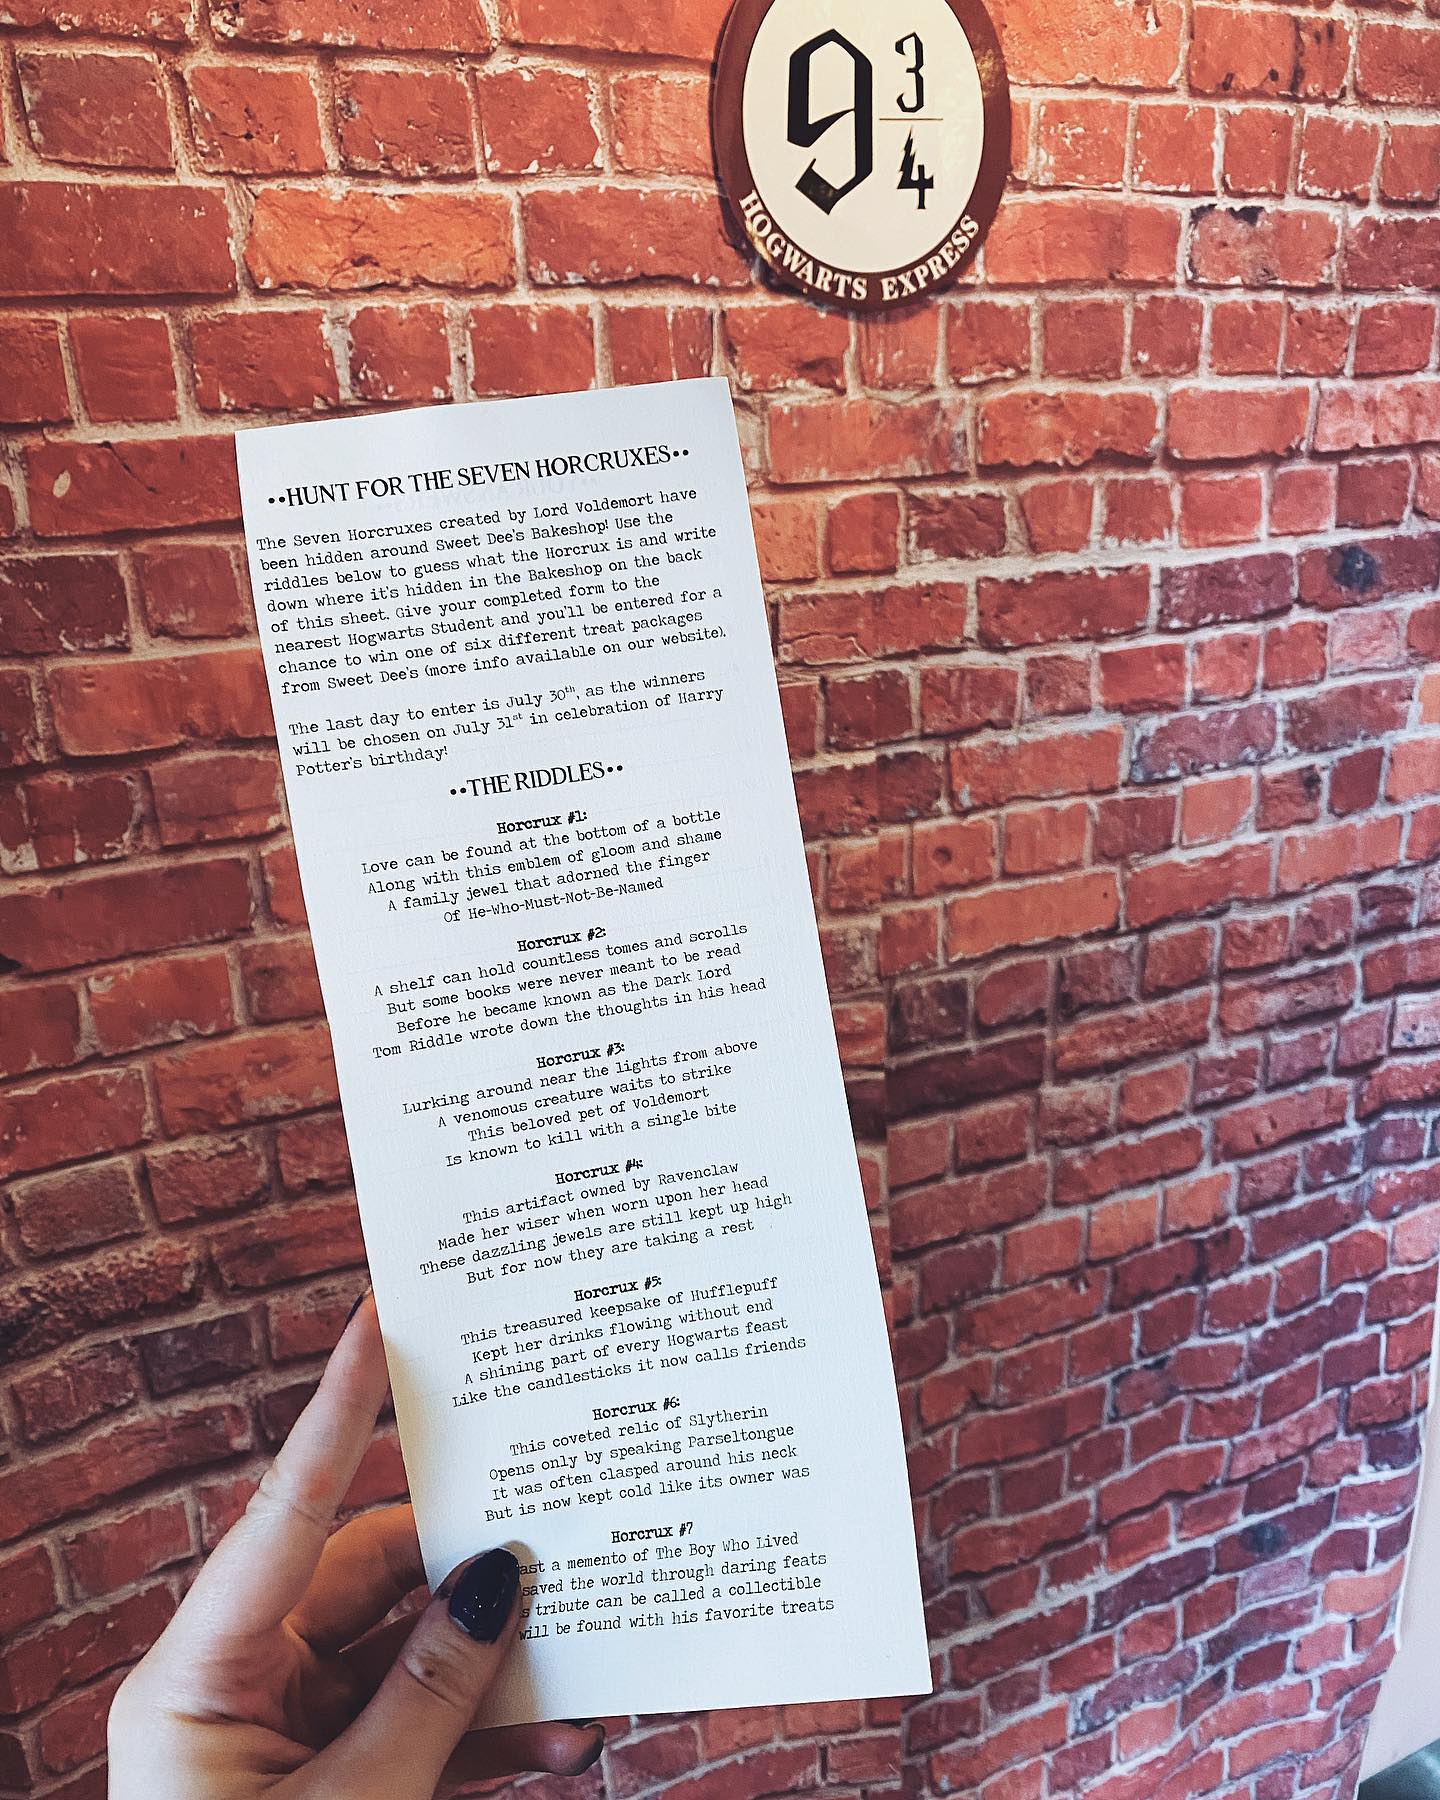 9 3/4
HOGWARTS EXPRESS
••HUNT FOR THE SEVEN HORCRUXES••
The Seven Horcruxes created by Lord Voldemort have
been hidden around Sweet Dee's Bakeshop! Use the
riddles below to guess what the Horcrux is and write
down where it's hidden in the Bakeshop on the back
of this sheet. Give your completed form to the
nearest Hogwarts Student and you'll be entered for a
chance to win one of six different treat packages
from Sweet Dee's (more info available on our website).
The last day to enter is July 30th, as the winners
will be chosen on July 31st in celebration of Harry
Potter's birthday!
••THE RIDDLES••
Horcrux #1:
Love can be found at the bottom of a bottle
Along with this emblem of gloom and shame
A family jewel that adorned the finger
Of He-Who-Must-Not-Be-Named
Horcrux #2:
A shelf can hold countless tomes and scrolls
But some books were never meant to be read
Before he became known as the Dark Lord
Tom Riddle wrote down the thoughts in his head
Horcrux #3:
Lurking around near the lights from above
A venomous creature waits to strike
This beloved pet of Voldemort
Is known to kill with a single bite
Horcrux #4:
This artifact owned by Ravenclaw
Made her wiser when worn upon her head
These dazzling jewels are still kept up high
But for now they are taking a rest
Horcrux #5:
This treasured keepsake of Hufflepuff
Kept her drinks flowing without end
A shining part of every Hogwarts feast
Like the candlesticks it now calls friends
Horcrux #6:
This coveted relic of Slytherin
Opens only by speaking Parseltongue
It was often clasped around his neck
But is now kept cold like its owner was
Horcrux #7
a memento of The Boy Who Lived
saved the world through daring feats
tribute can be called a collectible
will be found with his favorite treats